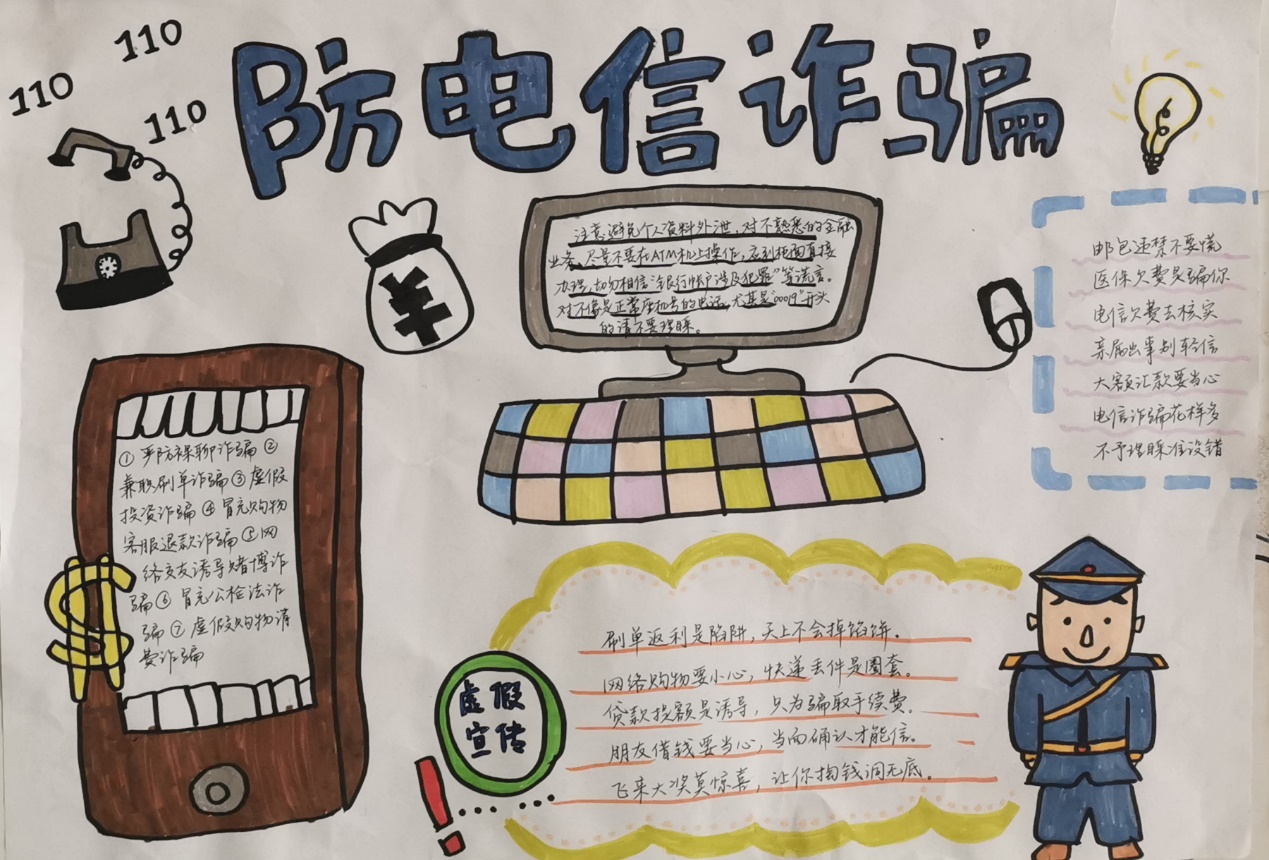 110
110
110
防电信诈骗
注意避免个人资料外泄,对不熟悉的金融
业务,尽量不要在ATM机上操作,应到柜面直接
办理,切勿相信"银行帐户涉及犯罪"等谎言。
对不像是正常座机号的电话,尤其是"0019"开头
的请不要理睬。
邮包违禁不要慌
医保欠费是骗你
电信欠费去核实
亲属出事别轻信
大额汇款要当心
电信诈骗花样多
不予理睬准没错
①严防裸聊诈骗②
兼职刷单诈骗③虚假
投资诈骗④冒充购物
客服退款诈骗⑤网
络交友诱导赌博诈
骗⑥冒充公检法诈
骗⑦虚假购物消
费诈骗
虚假
宣传
刷单返利是陷阱,天上不会掉馅饼。
网络购物要小心,快递丢件是圈套。
贷款提额是诱导,只为骗取手续费。
朋友借钱要当心,当面确认才能信。
飞来大奖莫惊喜,让你掏钱洞无底。